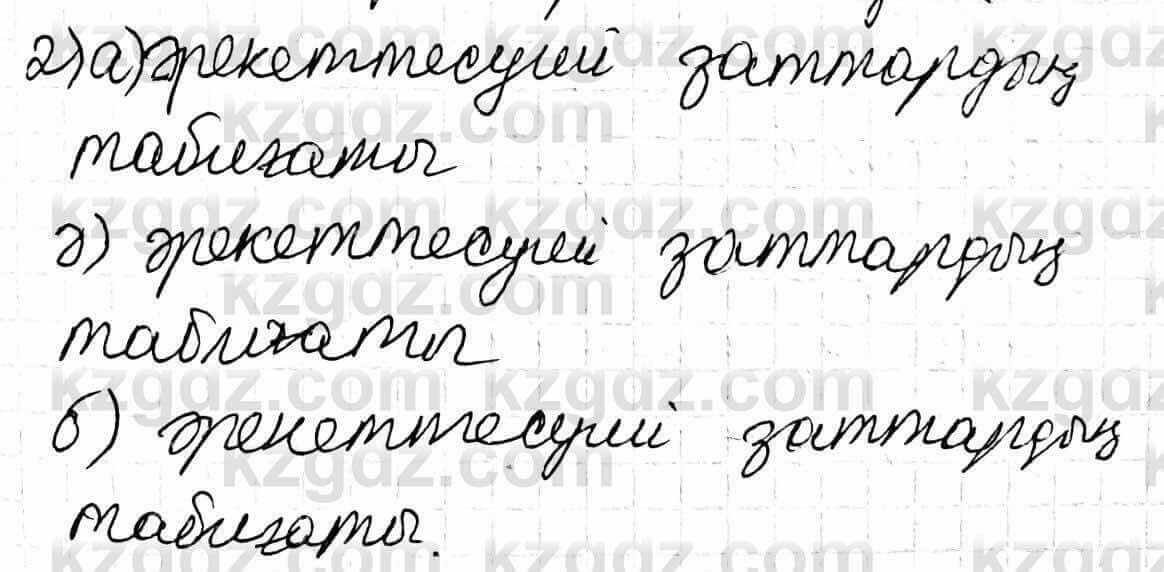 2) а) әрекеттесуші заттардың
табиғаты
ә) әрекеттесуші заттардың
табиғаты
б) әрекеттесуші заттардың
табиғаты.